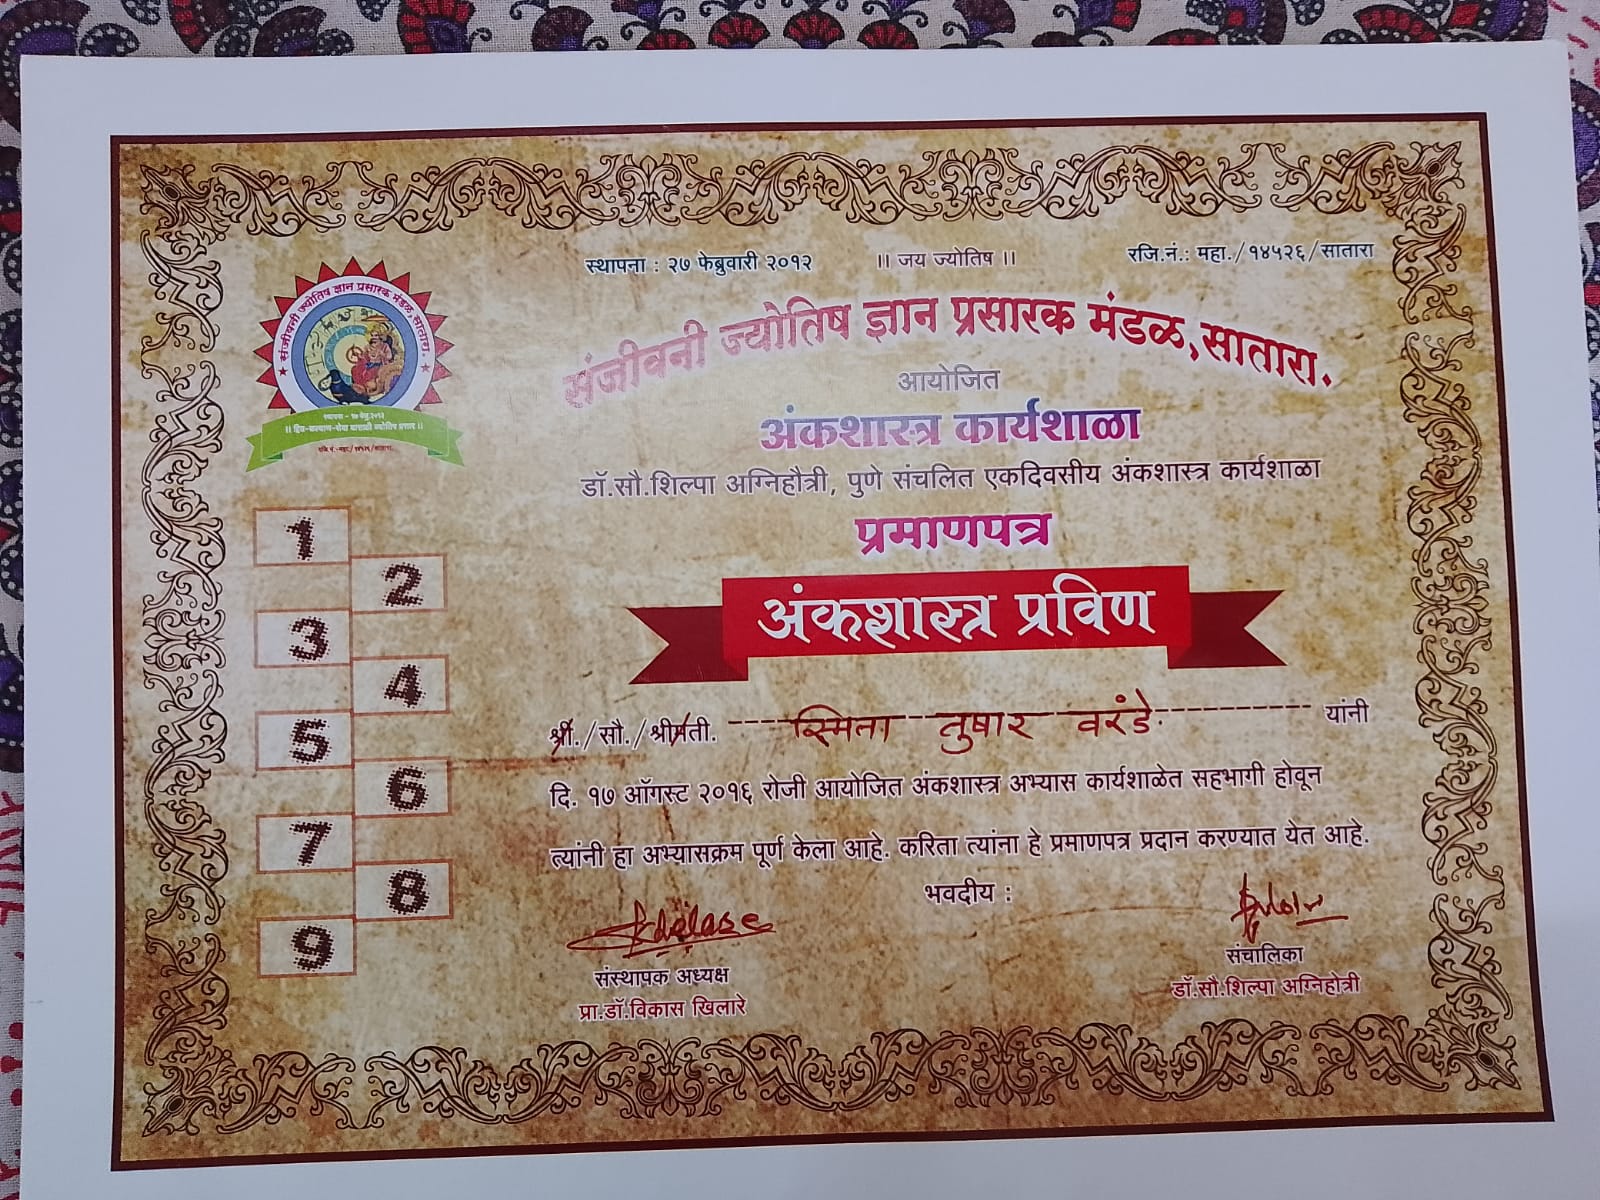 स्थापना : २७ फेब्रुवारी २०१२ ।। जय ज्योतिष ।। रजि.नं.: महा./१४५२६/सातारा
संजीवनी ज्योतिष ज्ञान प्रसारक मंडळ,सातारा.
संजीवनी ज्योतिष ज्ञान प्रसारक मंडळ,सातारा.
आयोजित
अंकशास्त्र कार्यशाळा
डॉ.सौ.शिल्पा अग्निहौत्री, पुणे संचलित एकदिवसीय अंकशास्त्र कार्यशाळा
प्रमाणपत्र
अंकशास्त्र प्रविण
श्री./सौ./श्रीमती. स्मिता तुषार वरंडे. यांनी
दि. १७ ऑगस्ट २०१६ रोजी आयोजित अंकशास्त्र अभ्यास कार्यशाळेत सहभागी होवून
त्यांनी हा अभ्यासक्रम पूर्ण केला आहे. करिता त्यांना हे प्रमाणपत्र प्रदान करण्यात येत आहे.
भवदीय :
संस्थापक अध्यक्ष
प्रा.डॉ.विकास खिलारे
संचालिका
डॉ.सौ.शिल्पा अग्निहोत्री
1
2
3
4
5
6
7
8
9